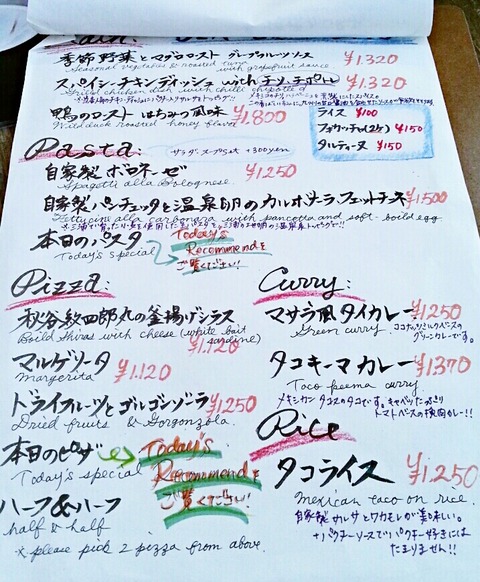 季節野菜とマグロロースト グレープフルーツソース ¥1.320
Seasonal vegetables & roasted tuna with grapefruit sauce
スペインチキンディッシュ with チリ・チポトレ ¥1.320
Grilled chicken dish with chilli chipotle
鴨のロースト はちみつ風味 ¥1.800
Wild duck roasted honey flavor
ライス ¥100
フォカッチャ(2ヶ) ¥150
タルティーヌ ¥150
Pasta: サラダ・スープset +300yen
自家製 ボロネーゼ ¥1250
Spagetti alla Bolognese
自家製パンチェッタと温泉卵のカルボナーラフェットチーネ ¥1500
Fettucini alla carbonara with pancetta and soft-boild egg
本日のパスタ Today's Recommendをご覧ください!
Today's special
Pizza:
秋谷紋四郎丸の釜揚げシラス
Boild shiras with cheese (white bait sardine) ¥1.120
マルゲリータ ¥1.120
Margerita
ドライフルーツとゴルゴンゾーラ ¥1250
Dried fruits & Gorgonzola.
本日のピザ Today's Recommendをご覧ください!
Today's special
ハーフ&ハーフ
half & half
※ please pick 2 pizza from above.
Curry:
マサラ風タイカレー ¥1250
Green curry. ココナッツミルクベースのグリーンカレーです。
タコキーマカレー ¥1370
Taco keema curry
メキシカンタコスのタコです。キャベツたっぷり
トマトベースの挽肉カレー!!
Rice
タコライス ¥1.250
mexican taco on rice.
自家製サルサとワカモレが美味しい。
+パクチーソースでパクチー好きには
たまりません!!